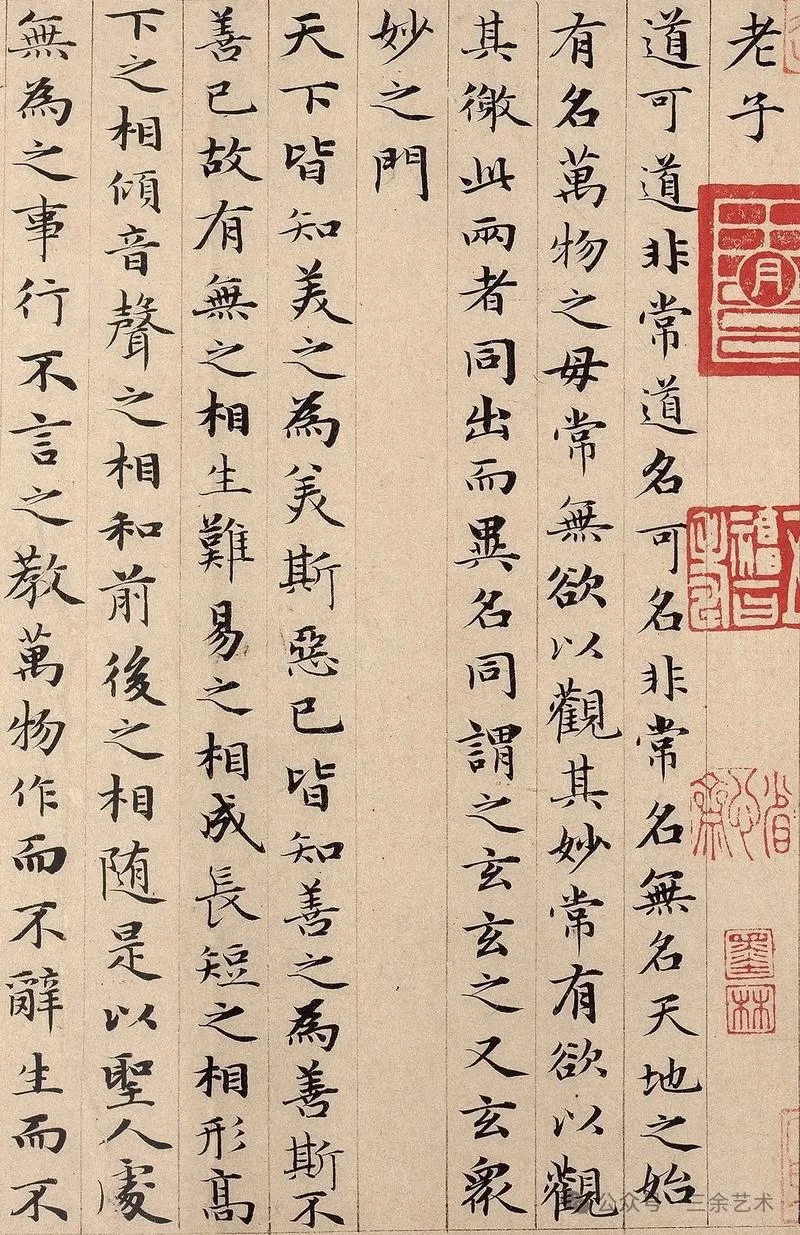 老子
道可道非常道名可名非常名無名天地之始
有名萬物之母常無欲以觀其妙常有欲以觀
其徼此兩者同出而異名同謂之玄玄之又玄衆
妙之門
天下皆知美之為美斯惡已皆知善之為善斯不
善已故有無之相生難易之相成長短之相形高
下之相傾音聲之相和前後之相随是以聖人處
無為之事行不言之教萬物作而不辭生而不
墨林
公众号 三余艺术